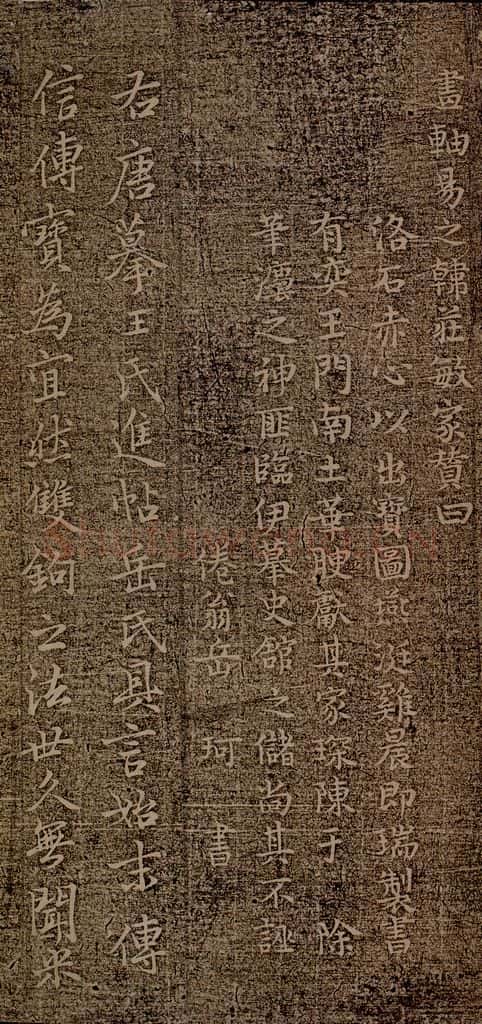 畫軸易之韓莊敏家贊曰
洛石赤心以出寶圖燕涎雞晨即瑞製書
有奕王門南土華腴獻其家琛陳于 除
筆灋之神匪臨伊摹史館之儲尚其不誣
倦翁岳 珂 書
右唐摹王氏進帖岳氏具言始末傳
信傳寶為宜然雙鉤之法世久無聞米